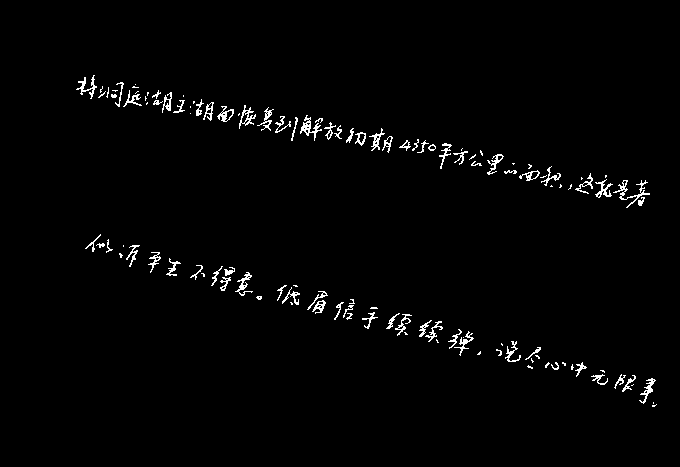 将洞庭湖主湖面恢复到解放初期4350平方公里的面积，这就是著
似诉平生不得意。低眉信手续续弹，说尽心中无限事。